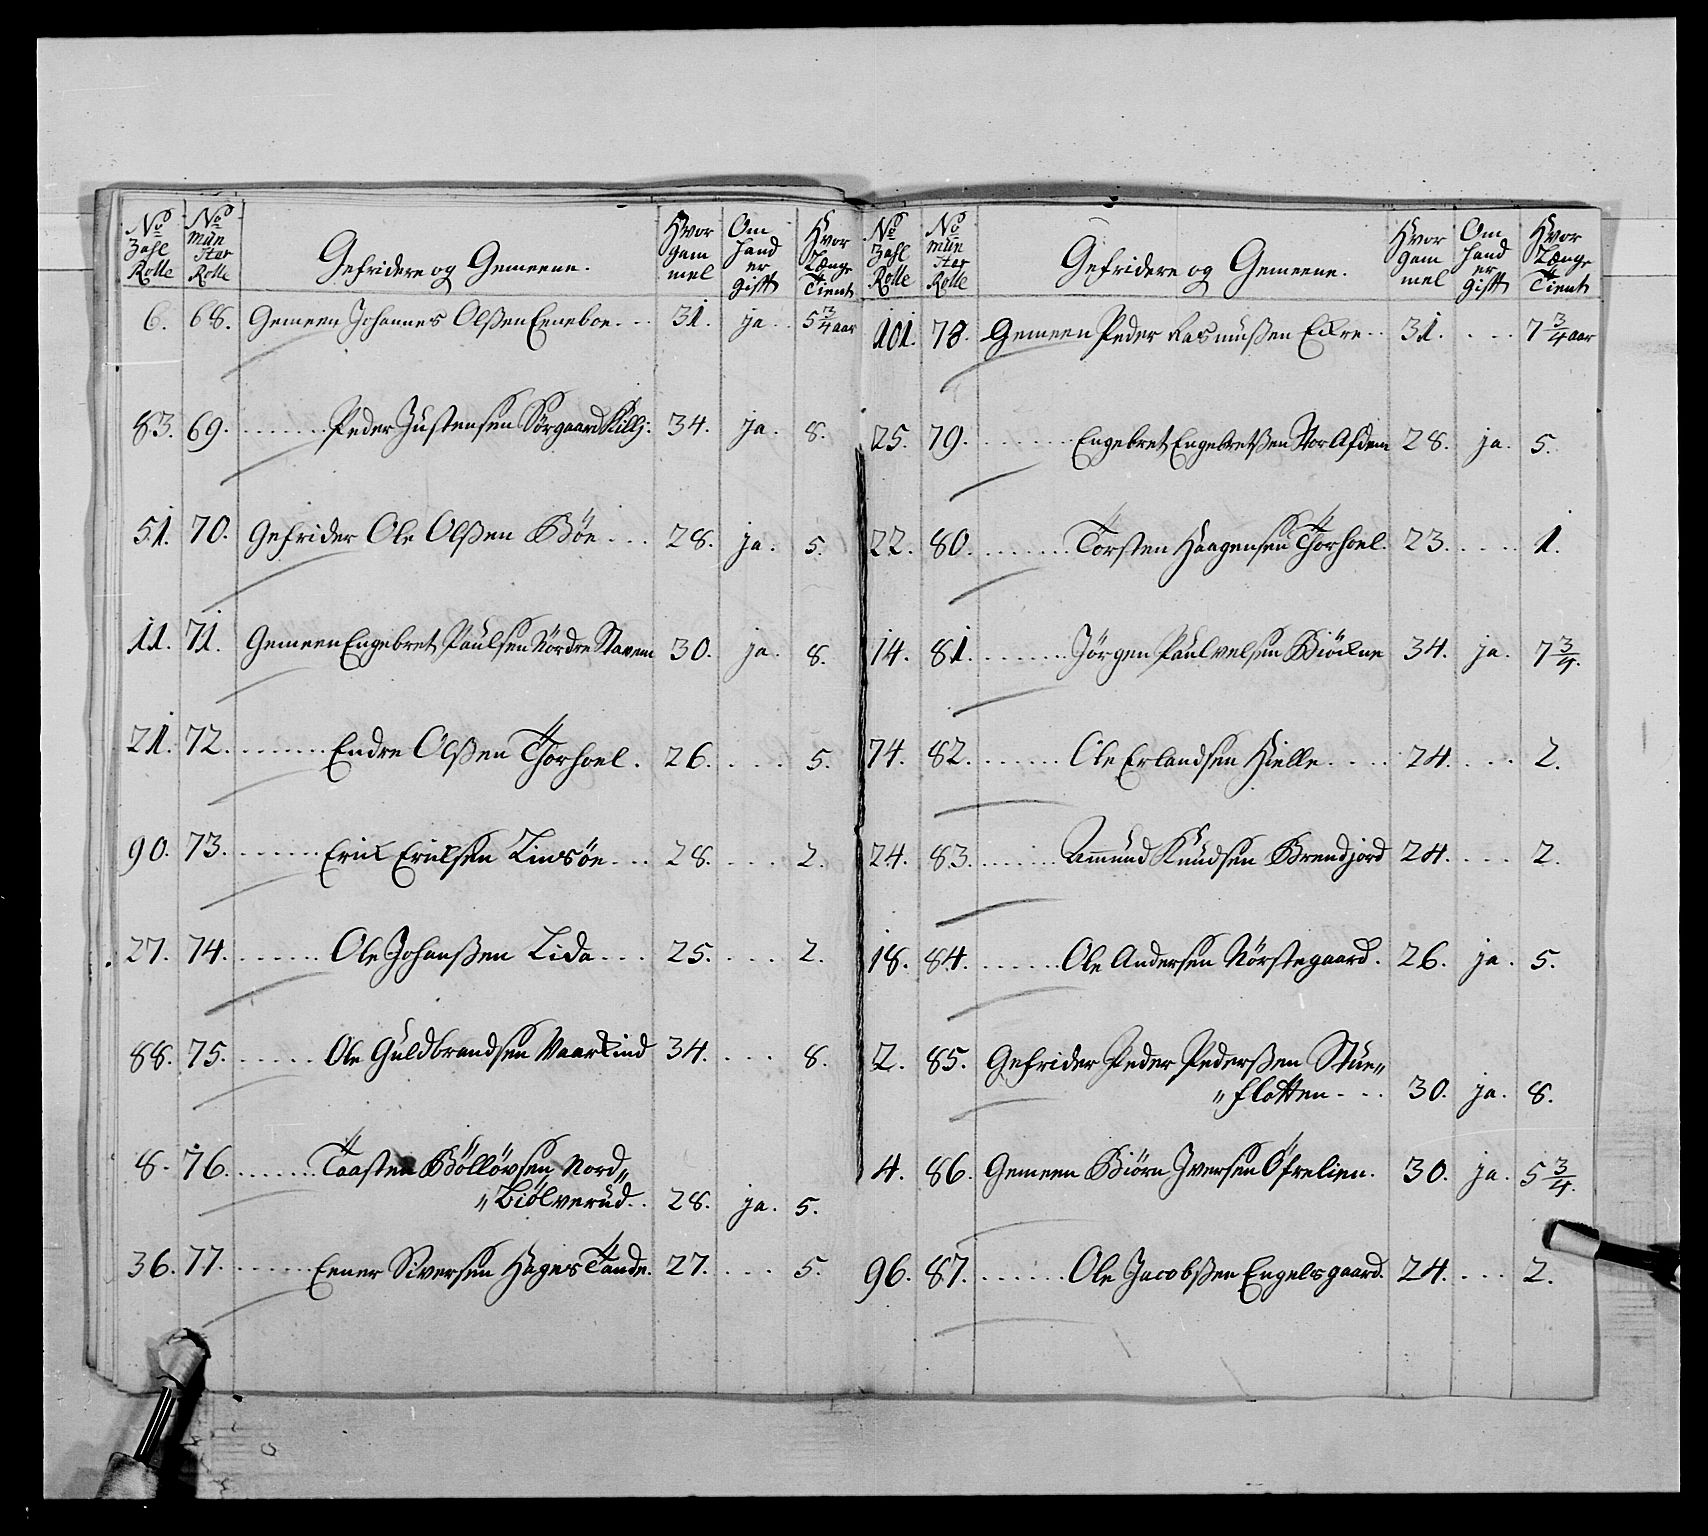 No Zahl Rolle | No Mün ster Rolle | Gefridere og Gemeene. | Hvor gam mel | Om hand er gift | Hvor Længe Tient
6. 68. Gemeen Johannes Olßen Enneboe ... 31. ja. 5 3/4 aar
83. 69. ........ Peder Justensen Sörgaard Killj: 34. ja. 8.
51. 70. Gefrider Ole Olßen Böe ... 28. ja. 5.
11. 71. Gemeen Engebret Paulsen Nördre Stavem 30. ja. 8.
21. 72. ........ Endre Olßen Thorhoel. 26. .... 5.
90. 73. ........ Erick Ericksen Linsöe ... 28. .... 2.
27. 74. ........ Ole Johanßen Lida ... 25. .... 2.
88. 75. ...... Ole Guldbrandsen Vaarkind 34. .... 8.
8. 76. ........ Taasten Böllövsen Nord„
„Liölverud.. 28. ja. 5.
36. 77. ........ Ener Siversen Hages Tande. 27. .... 5.
No Zahl Rolle | No Mün ster Rolle | Gefridere og Gemeene. | Hvor gam mel | Om hand er gift | Hvor Længe Tient
101. 78. Gemeen Peder Rasmußen Eckre .. 31. .... 7 3/4 aar
25. 79. ........ Engebret Engebretßen Stor Afdem 28. ja. 5.
22. 80. ........ Torsten Haagensen Thorhoel. 23. .... 1.
14. 81. ........ Jörgen Paulvelsen Biöckne 34. ja. 7 3/4.
74. 82. ........ Ole Erlandsen Hielle .... 24. .... 2.
24. 83. ....... Ammund Knudsen Brendjord 24. .... 2.
18. 84. ....... Ole Andersen Nörstegaard. 26. ja. 5.
2. 85. Gefrider Peder Pederßen Stue„
„flotten ... 30. ja. 8.
4. 86. Gemeen Biörn Iversen Öfrelien. 30. ja. 5 3/4.
96. 87. ....... Ole Jacobßen Engelsgaard. 24. .... 2.